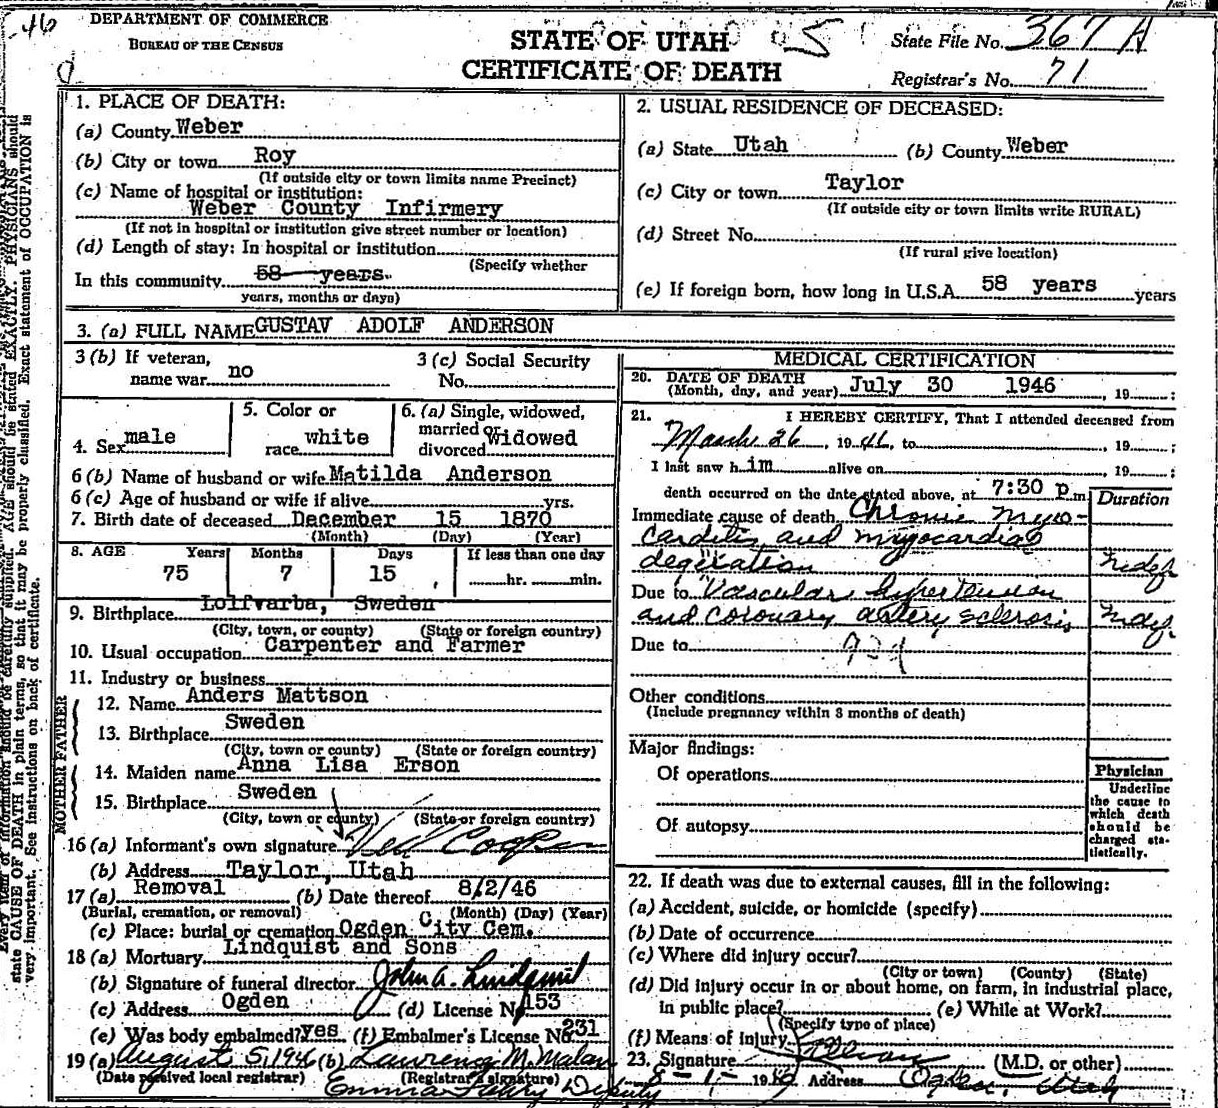 DEPARTMENT OF COMMERCE
BUREAU OF THE CENSUS
STATE OF UTAH
CERTIFICATE OF DEATH
State File No. 367 A
Registrar's No. 71
1. PLACE OF DEATH:
(a) County Weber
(b) City or town Roy
(If outside city or town limits name Precinct)
(c) Name of hospital or institution:
Weber County Infirmery
(If not in hospital or institution give street number or location)
(d) Length of stay: In hospital or institution
(Specify whether
In this community 58 years.
years, months or days)
2. USUAL RESIDENCE OF DECEASED:
(a) State Utah (b) County Weber
(c) City or town Taylor
(If outside city or town limits write RURAL)
(d) Street No.
(If rural give location)
(e) If foreign born, how long in U.S.A. 58 years years
3. (a) FULL NAME GUSTAV ADOLF ANDERSON
3 (b) If veteran,
name war no
3 (c) Social Security
No.
4. Sex male
5. Color or
race white
6. (a) Single, widowed,
married or
divorced Widowed
6 (b) Name of husband or wife Matilda Anderson
6 (c) Age of husband or wife if alive yrs.
7. Birth date of deceased December 15 1870
(Month) (Day) (Year)
8. AGE Years Months Days If less than one day
75 7 15 hr. min.
9. Birthplace Lolfvarba, Sweden
(City, town, or county) (State or foreign country)
10. Usual occupation Carpenter and Farmer
11. Industry or business
FATHER
12. Name Anders Mattson
13. Birthplace Sweden
(City, town or county) (State or foreign country)
MOTHER
14. Maiden name Anna Lisa Erson
15. Birthplace Sweden
(City, town or county) (State or foreign country)
16 (a) Informant's own signature
(b) Address Taylor, Utah
17 (a) Removal (b) Date thereof 8/2/46
(Burial, cremation, or removal) (Month) (Day) (Year)
(c) Place: burial or cremation Ogden City Cem.
18 (a) Mortuary Lindquist and Sons
(b) Signature of funeral director John A. Lindquist
(c) Address Ogden (d) License No. 153
(e) Was body embalmed? yes (f) Embalmer's License No. 231
19 (a) August 5, 1946 (b) Lawrence M. Malan
(Date received local registrar) (Registrar's signature)
Emma Deputy
MEDICAL CERTIFICATION
20. DATE OF DEATH
(Month, day, and year) July 30 1946, 19 ;
21. I HEREBY CERTIFY, That I attended deceased from
March 26, 1946, to , 19 ;
I last saw him alive on , 19 ;
death occurred on the date stated above, at 7:30 p m.
Duration
Immediate cause of death Chronic Myo-
carditis and myocardial
degeration
Due to Vascular hypertension
and coronary artery sclerosis
Due to
Other conditions
(Include pregnancy within 3 months of death)
Major findings:
Of operations
Of autopsy
Physician
Underline
the cause to
which death
should be
charged sta-
tistically.
22. If death was due to external causes, fill in the following:
(a) Accident, suicide, or homicide (specify)
(b) Date of occurrence
(c) Where did injury occur?
(City or town) (County) (State)
(d) Did injury occur in or about home, on farm, in industrial place,
in public place? (e) While at Work?
(Specify type of place)
(f) Means of injury
23. Signature (M.D. or other)
8-1- 1946 Address Ogden, Utah
state CAUSE OF DEATH in plain terms, so that it may be properly classified. Exact statement of OCCUPATION is
very important. See instructions on back of certificate.